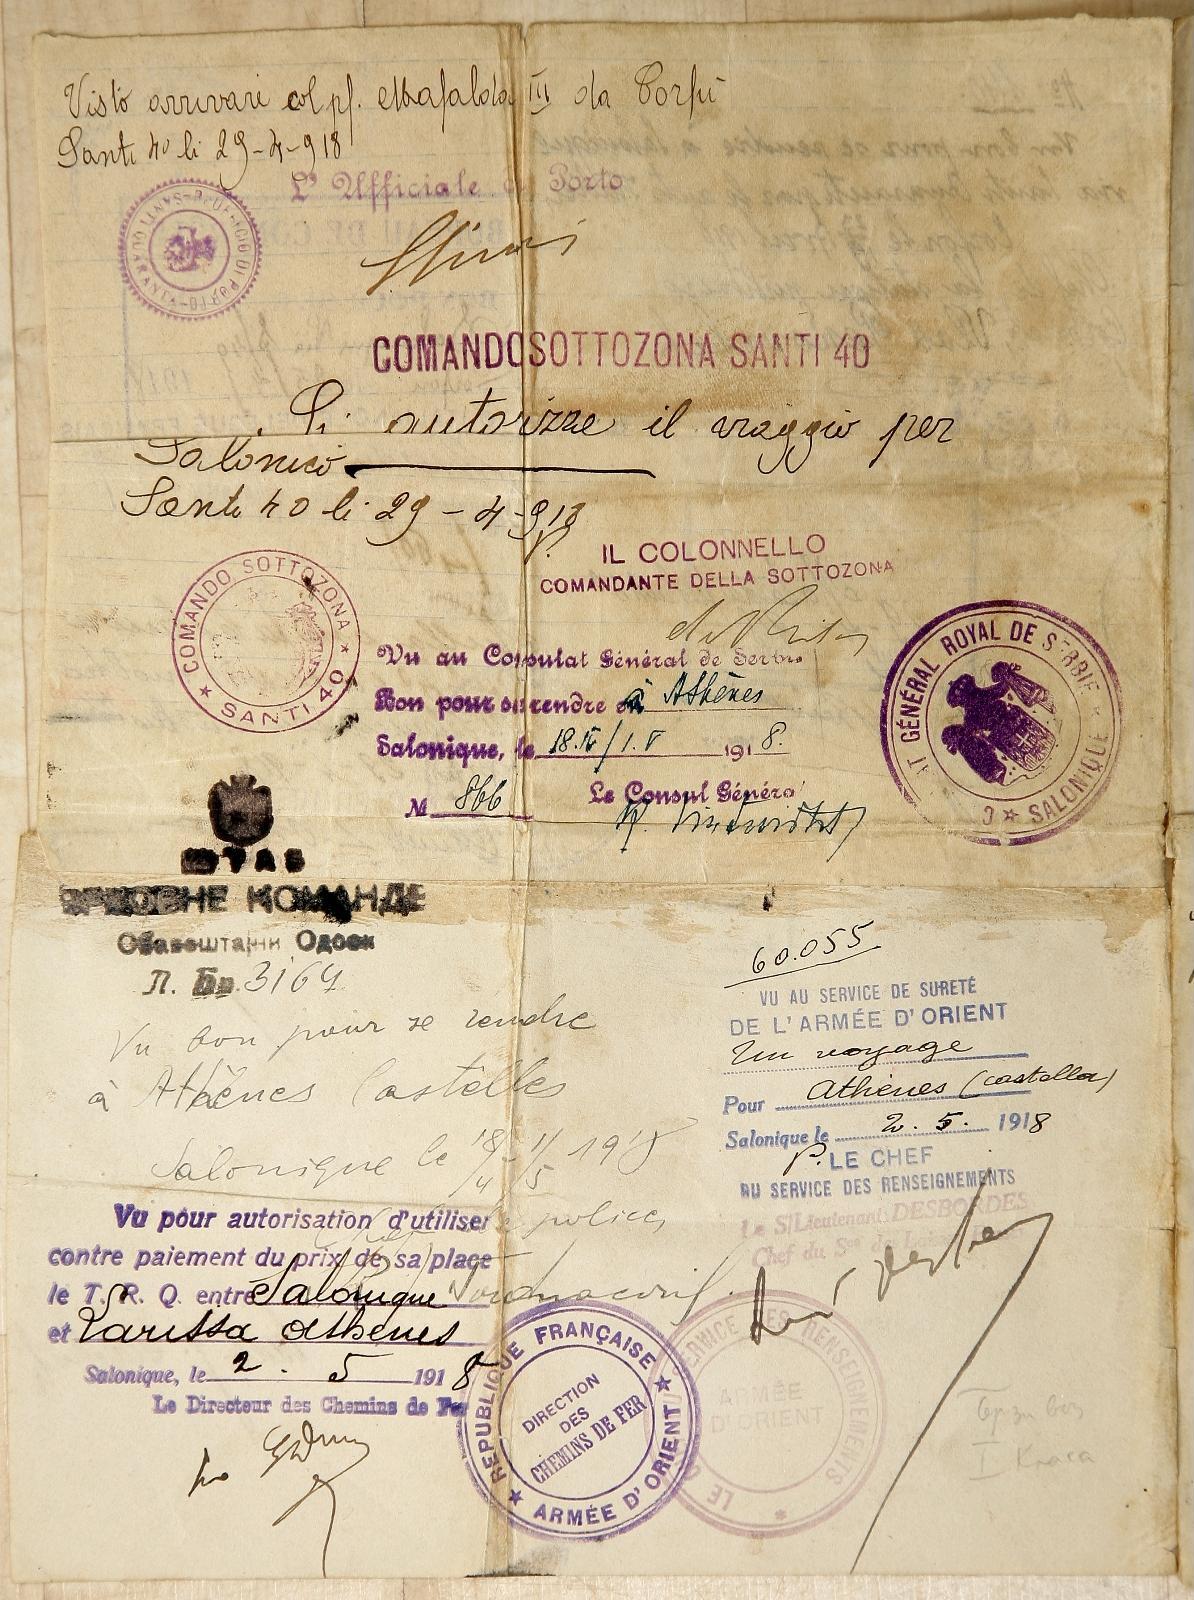 Visto arrivare col pf. Mafalda III da Corfù
Santi 40 li 29-4-918
L'Ufficiale di Porto
UFFICIO DI PORTO - SANTI QUARANTA
COMANDO SOTTOZONA SANTI 40
Si autorizza il viaggio per
Salonicco
Santi 40 li 29-4-918
p.
IL COLONNELLO
COMANDANTE DELLA SOTTOZONA
COMANDO SOTTOZONA
SANTI 40
Vu au Consulat Général de Serbie
Bon pour se rendre à Athènes
Salonique, le 18.IV/1.V 1918.
№ 866 Le Consul Général
AT GÉNÉRAL ROYAL DE SERBIE
C SALONIQUE
ШТАБ
ВРХОВНЕ КОМАНДЕ
Обавештајни Одсек
П. Бр. 3164
Vu bon pour se rendre
à Athènes Castelles
Salonique le 18/4 - 1/5 1918
police
60.055
VU AU SERVICE DE SURETÉ
DE L'ARMÉE D'ORIENT
Un voyage
Pour Athènes (Castella)
Salonique le 2. 5. 1918
P. LE CHEF
DU SERVICE DES RENSEIGNEMENTS
Le S/Lieutenant DESBORDES
Chef du Sce de
Vu pour autorisation d'utiliser
contre paiement du prix de sa place
le T. R. Q. entre Salonique
et Larissa Athènes
Salonique, le 2. 5 1918
Le Directeur des Chemins de Fer
po
RÉPUBLIQUE FRANÇAISE
DIRECTION
DES
CHEMINS DE FER
ARMÉE D'ORIENT
SERVICE DES RENSEIGNEMENTS
ARMÉE
D'ORIENT
I Класа